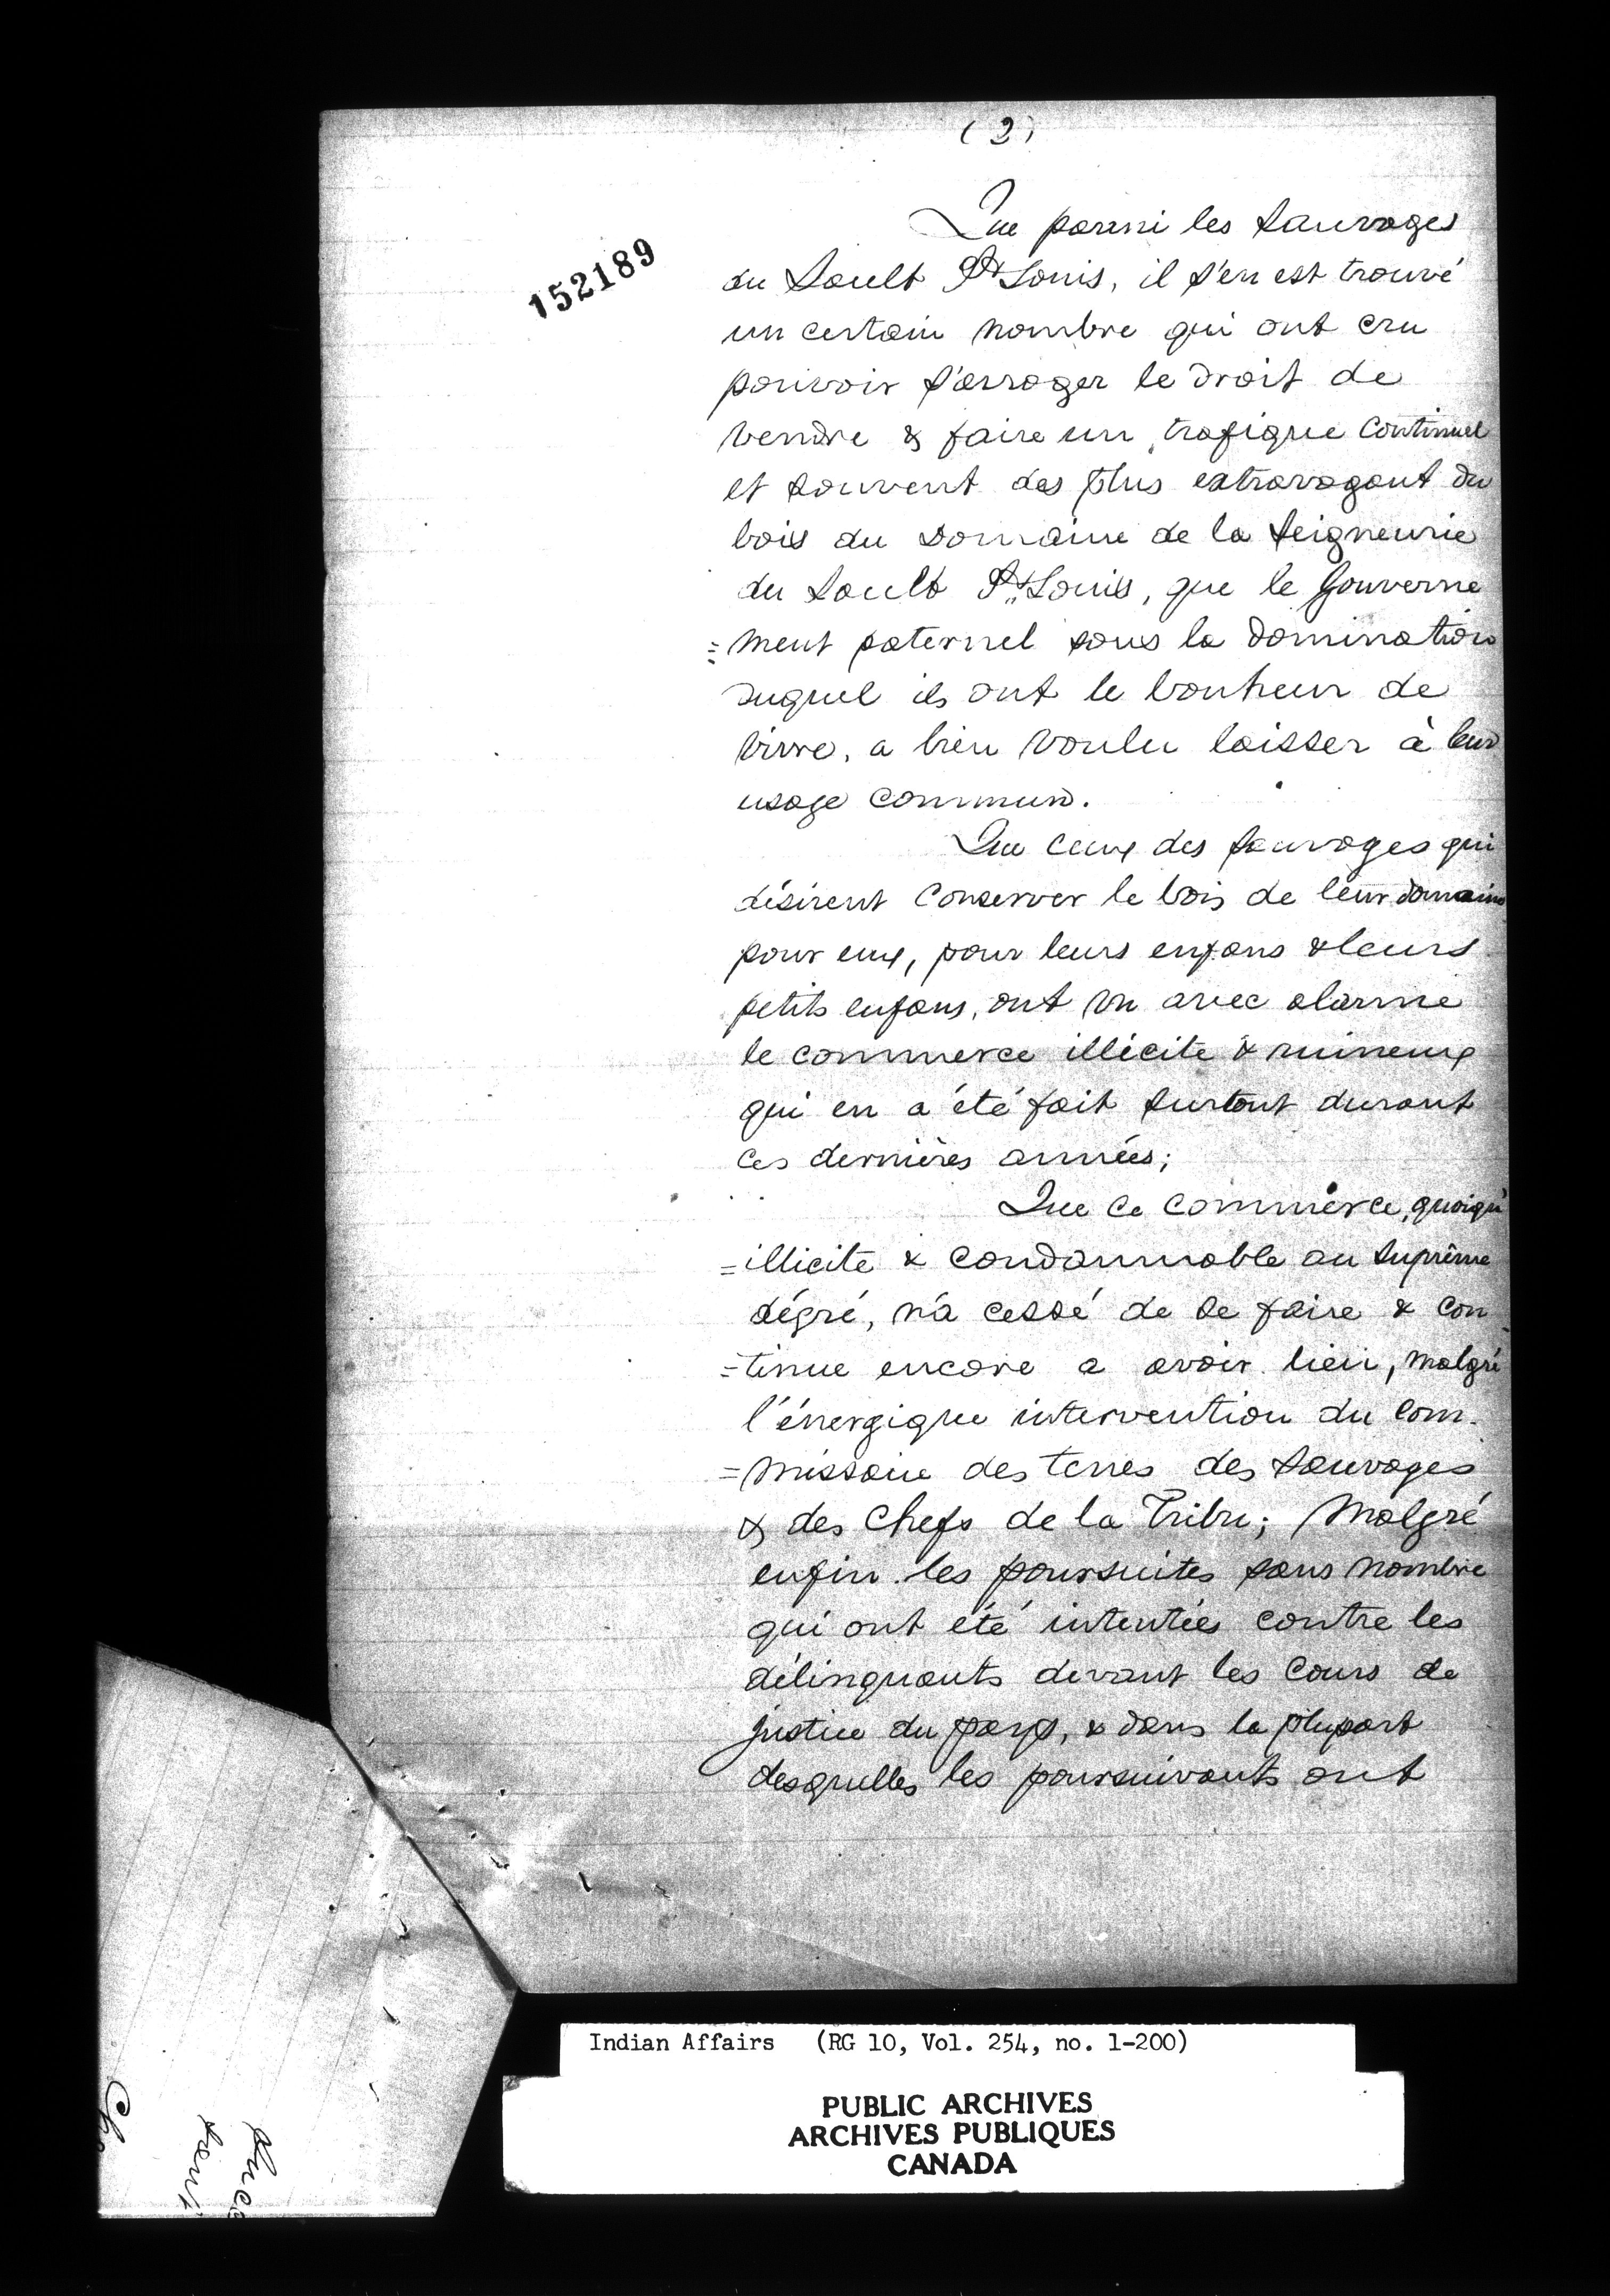 (2)
152189
Que parmi les Sauvages
du Sault St Louis, il s'en est trouvé
un certain nombre qui ont cru
pouvoir s'arroger le droit de
vendre & faire un trafique continuel
et souvent des plus extravagant du
bois du Domaine de la Seigneurie
du Sault St Louis, que le Gouverne
=ment paternel sous la domination
duquel ils ont le bonheur de
vivre, a bien voulu laisser à leur
usage commun.
Que ceux des Sauvages qui
désirent conserver le bois de leur domaine
pour eux, pour leurs enfans & leurs
petits enfans, ont vu avec alarme
le commerce illécite & ruineux
qui en a été fait surtout durant
ces dernières années;
Que ce commerce, quoiqu'
=illicite & condamnable au suprême
dégré, n'a cessé de se faire & con
=tinue encore a avoir lieu, malgré
l'énergique intervention du Com-
=missaire des terres des Sauvages
& des Chefs de la Tribu; Malgré
enfin les poursuites sans nombre
qui ont été intentées contre les
délinquants devant les Cours de
justice du pays, & dans la plupart
desquelles les poursuivants ont
Indian Affairs (RG 10, Vol. 254, no. 1-200)
PUBLIC ARCHIVES
ARCHIVES PUBLIQUES
CANADA